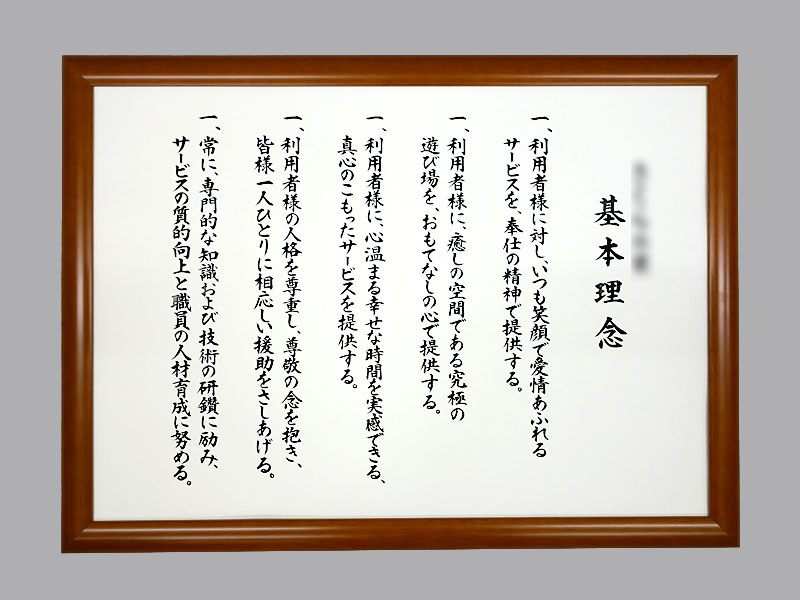 基本理念
一、利用者様に対し、いつも笑顔で愛情あふれる
サービスを、奉仕の精神で提供する。
一、利用者様に、癒しの空間である究極の
遊び場を、おもてなしの心で提供する。
一、利用者様に、心温まる幸せな時間を実感できる、
真心のこもったサービスを提供する。
一、利用者様の人格を尊重し、尊敬の念を抱き、
皆様一人ひとりに相応しい援助をさしあげる。
一、常に、専門的な知識および技術の研鑽に励み、
サービスの質的向上と職員の人材育成に努める。